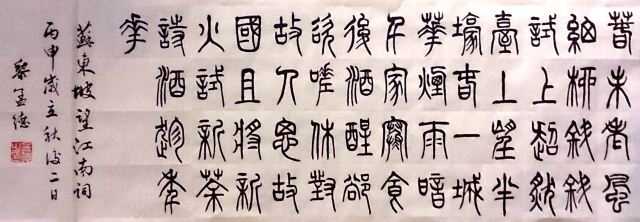 春未老風
細柳斜斜
試上超然
臺上望半
壕春一城
華煙雨暗
千家寒食
後酒醒卻
咨嗟休對
故人思故
國且將新
火試新茶
詩酒趁年
華
蘇東坡望江南詞
丙申歲立秋後二日
黎孟德